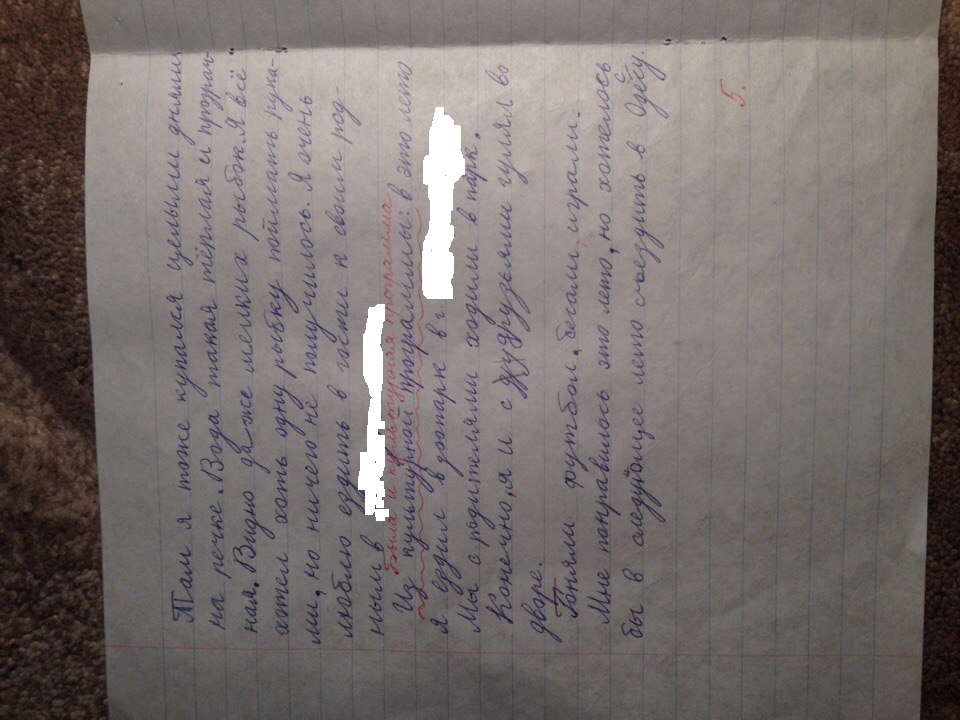 Там я тоже купался целыми днями
на речке. Вода такая тёплая и прозрач-
ная. Видно даже мелких рыбок. Я всё
хотел хоть одну рыбку поймать рука-
ми, но ничего не получилось. Я очень
люблю ездить в гости к своим род-
ным в
Была и культурная программа
Из культурной программы: в это лето
я ездил в зоопарк в г.
Мы с родителями ходили в парк.
Конечно, я и с друзьями гулял во
дворе.
Гоняли футбол, бегали, играли.
Мне понравилось это лето, но хотелось
бы в следующее лето съездить в Одессу.
5.